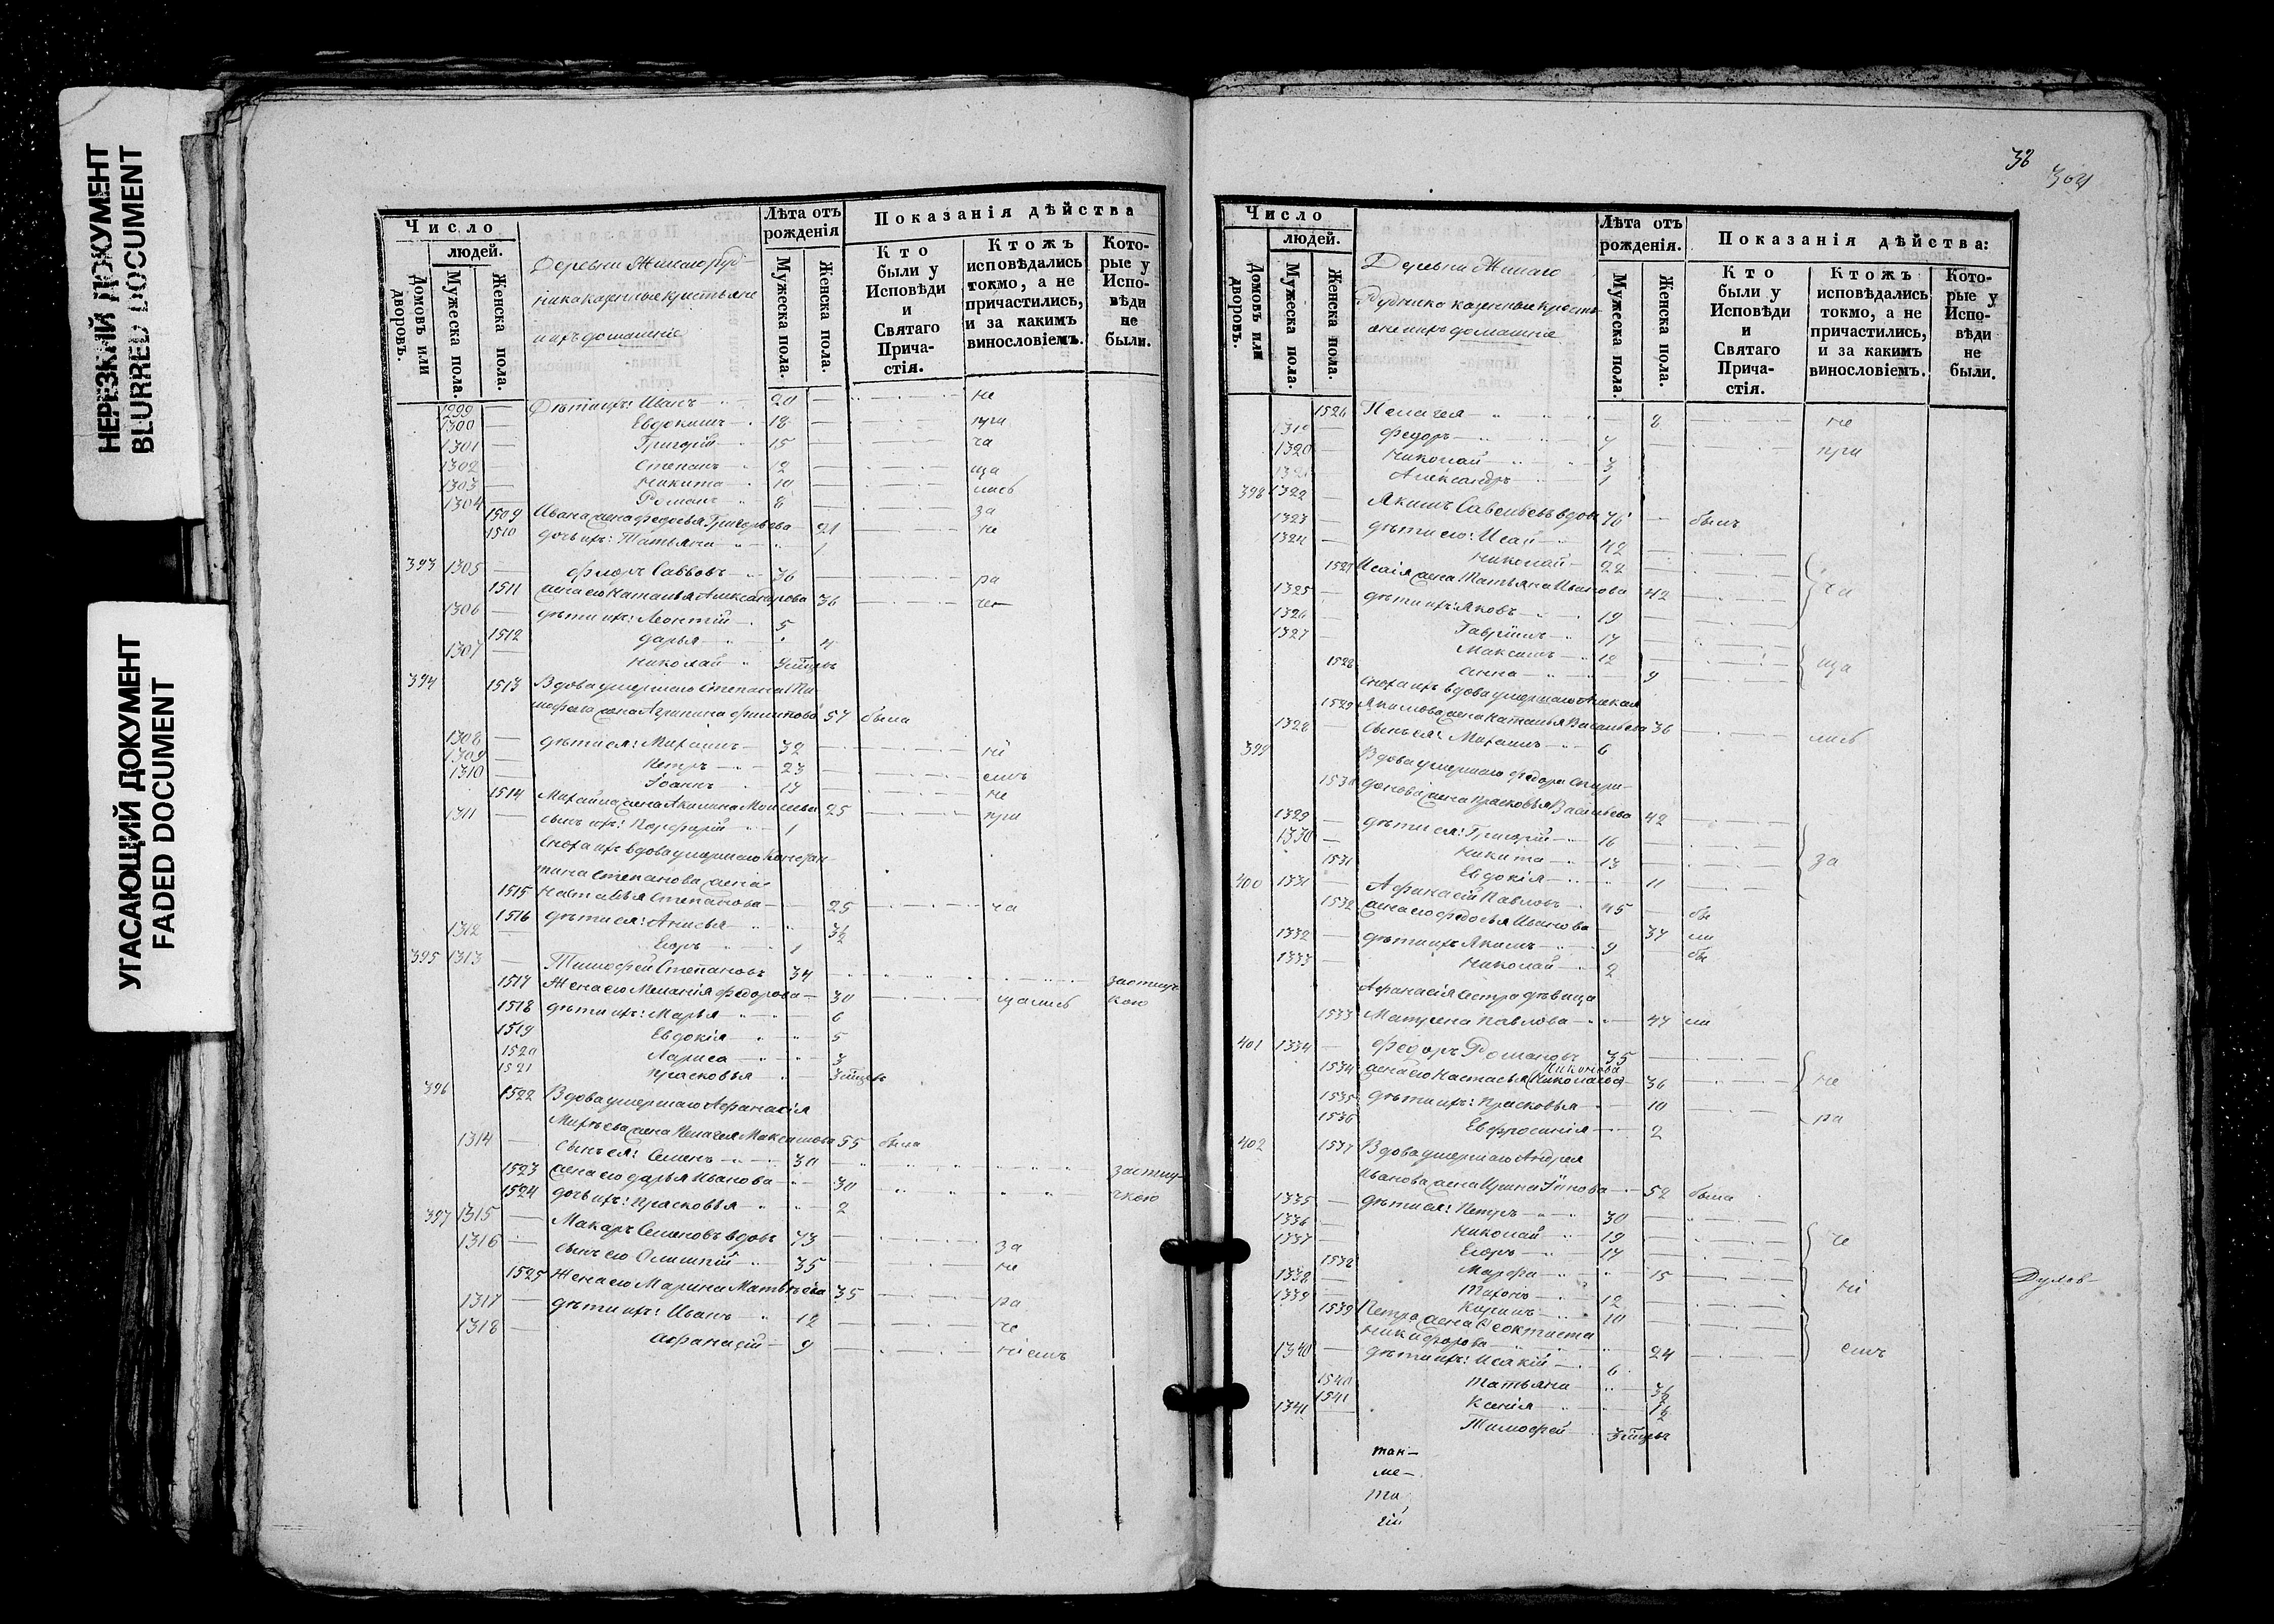 НЕРЕЗКИЙ ДОКУМЕНТ
BLURRED DOCUMENT
УГАСАЮЩИЙ ДОКУМЕНТ
FADED DOCUMENT
Число
людей.
Домовъ или дворовъ.
Мужеска пола.
Женска пола.
Деревни Жилаго Руд-
ника казенные крестьяне
и ихъ домашніе
Лѣта отъ рожденія
Мужеска пола.
Женска пола.
Показанія дѣйства
Кто были у Исповѣди и Святаго Прича-стія.
Ктожъ исповѣдались токмо, а не причастились, и за какимъ винословіемъ.
Кото-рые у Испо-вѣди не были.
1299 — Дѣти ихъ: Иванъ 20 — не
1300 — Евдокимъ 18 — при
1301 — Григорій 15 — ча
1302 — Степанъ 12 — ща
1303 — Никита 10 — лись
1304 — Романъ 8 — за
1509 Ивана жена Федосья Григорьева — 21 — не
1510 дочь ихъ: Татьяна 1
393 1305 — Флоръ Саввовъ 36 — ра
1511 жена его Наталья Александрова 36 — че
1306 — дѣти ихъ: Леонтій 5
1512 Дарья 4
1307 — Николай
394 1513 Вдова умершаго Степана
жена Агрипина Филипова 57 была
1308 — дѣти ея: Михаилъ 32 — ні
1309 — Петръ 23 — емъ
1310 — Іоаннъ 17 — не
1514 Михаила жена Акилина Моисеева 25 — при
1311 — сынъ ихъ: Порфирій 1
Сноха ихъ вдова умершаго
Степанова жена
1515 Наталья Степанова — 25 — ча
1516 дѣти ея: Анисья 3½
1312 Егоръ 1
395 1313 — Тимофей Степановъ 34
1517 Жена его Меланія Федорова — 30 — щались
1518 дѣти ихъ: Марья 6
1519 Евдокія 5
1520 Лариса 3
1521 Прасковья
396 1522 Вдова умершаго Афанасія
жена Пелагея Максимова 55 была
1314 — Сынъ ея: Семенъ 30
1523 жена его Дарья Иванова 30
1524 дочь ихъ: Прасковья 2
397 1315 — Макаръ Семеновъ вдовъ 73 — за
1316 — сынъ его Олимпій 35 — не
1525 Жена его Марина Матвѣева 35 — ра
1317 — дѣти ихъ: Иванъ 12 — че
1318 — Афанасій 9 — ніемъ
38
304
Число
людей.
Домовъ или дворовъ.
Мужеска пола.
Женска пола.
Деревни Жилаго
Рудника казенные кресть-
яне и ихъ домашніе
Лѣта отъ рожденія.
Мужеска пола.
Женска пола.
Показанія дѣйства:
Кто были у Исповѣди и Святаго Прича-стія.
Ктожъ исповѣдались токмо, а не причастились, и за какимъ винословіемъ.
Кото-рые у Испо-вѣди не были.
1526 Пелагея — 8 — не
1319 — Федоръ 7 — при
1320 — Николай 3
1321 Александръ 1
398 1322 — Якимъ Савельевъ вдовъ 76 — былъ
1323 — дѣти его: Исаія 42
1324 — Николай 22
1527 Исаія жена Татьяна Иванова 42 — ча
1325 — дѣти ихъ: Яковъ 19
1326 — Гавріилъ 17
1327 — Максимъ 12
1528 Анна 9 — ща
Сноха ихъ вдова умершаго
1529 Якимова жена Наталья Васильева 36
1328 — Сынъ ея: Михаилъ 6 — лись
399 Вдова умершаго Федора Спири-
1530 донова жена Прасковья Васильева 42
1329 — дѣти ея: Григорій 16
1330 — Никита 13 — за
1531 Евдокія 11
400 1331 — Афанасій Павловъ 45 — бы
1532 жена его Федосья Иванова — 37 ли
1332 — дѣти ихъ Якимъ 9 — бы
1333 — Николай 2
Афанасія сестра дѣвица
1533 Матрена Павлова 47 ли
401 1334 — Федоръ Романовъ 35
Никонова
1534 жена его Настасья (Николаева) 36 — не
1535 дѣти ихъ: Прасковья 10
1536 Евфросинія 2 — ра
402 1537 Вдова умершаго Андрея
Иванова жена Ирина — 52 была
1335 — дѣти ея: Петръ 30
1336 — Николай 19 — че
1337 — Егоръ 17
1538 Марфа 15
1338 — Тихонъ 12 — ні
1339 — Кирилъ 10
1539 Петра жена Феоктиста
Никифорова 24
1340 — дѣти ихъ: Исакій 6 — емъ
1540 Татьяна 3½
1541 Ксенія 1½
1341 — Тимофей